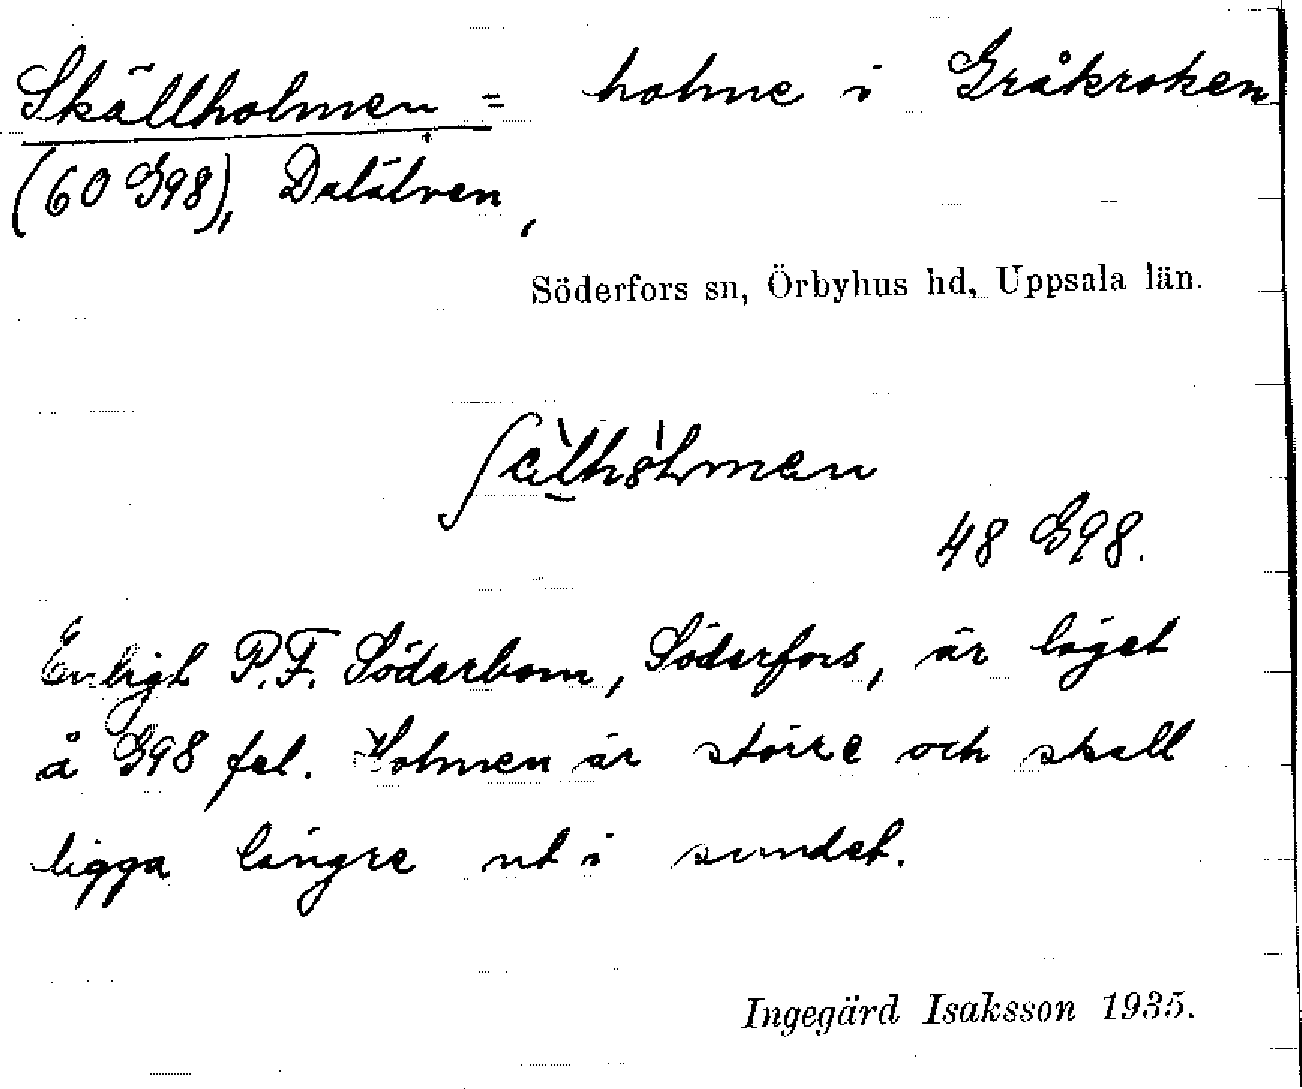 Skällholmen = holme i Gråkroken
(60 G98), Dalälven,
Söderfors sn, Örbyhus hd, Uppsala län.
48 G98.
Enligt P.F. Söderbom, Söderfors, är läget
å G98 fel. Holmen är större och skall
ligga längre ut i sundet.
Ingegärd Isaksson 1935.